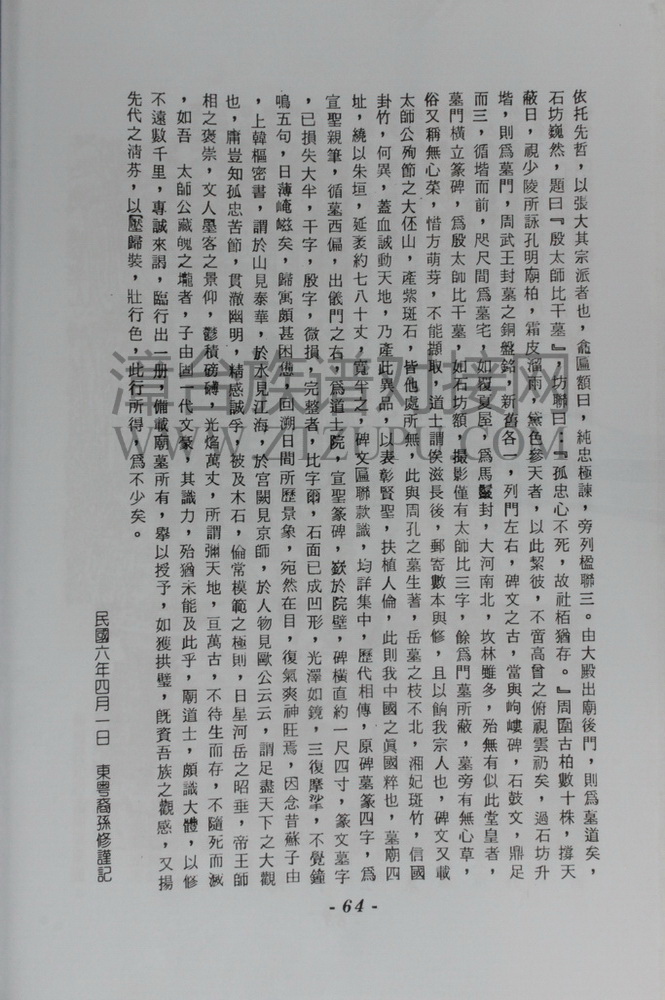 依托先哲，以張大其宗派者也，龕匾額曰，純忠極諫，旁列楹聯三。由大殿出廟後門，則爲墓道矣，
石坊巍然，題曰『殷太師比干墓』，坊聯曰：『孤忠心不死，故社栢猶存。』周圍古柏數十株，撐天
蔽日，視少陵所詠孔明廟柏，霜皮溜雨，黛色參天者，以此絜彼，不啻高曾之俯視雲礽矣，過石坊升
堦，則爲墓門，周武王封墓之銅盤銘，新舊各一，列門左右，碑文之古，當與岣嶁碑，石鼓文，鼎足
而三，循堦而前，咫尺間爲墓宅，如覆夏屋，爲馬鬣封，大河南北，坟林雖多，殆無有似此堂皇者，
墓門橫立篆碑，爲殷太師比干墓，如石坊額，撮影僅有太師比三字，餘爲門墓所蔽，墓旁有無心草，
俗又稱無心菜，惜方萌芽，不能擷取，道士謂俟滋長後，郵寄數本與修，且以餉我宗人也，碑文又載
太師公殉節之大伾山，產紫斑石，皆他處所無，此與周孔之墓生蓍，岳墓之枝不北，湘妃斑竹，信國
卦竹，何異，蓋血誠動天地，乃產此異品，以表彰賢聖，扶植人倫，此則我中國之眞國粹也，墓廟四
址，繞以朱垣，延袤約七八十丈，寬半之，碑文匾聯款識，均詳集中，歷代相傳，原碑墓篆四字，爲
宣聖親筆，循墓西偏，出儀門之右，爲道士院，宣聖篆碑，嵌於院壁，碑橫直約一尺四寸，篆文墓字
，已損失大半，干字，殷字，微損，完整者，比字爾，石面已成凹形，光澤如鏡，三復摩挲，不覺鐘
鳴五句，日薄崦嵫矣，歸寓頗甚困憊，回溯日間所歷景象，宛然在目，復氣爽神旺焉，因念昔蘇子由
，上韓樞密書，謂於山見泰華，於水見江海，於宫闕見京師，於人物見歐公云云，謂足盡天下之大觀
也，庸豈知孤忠苦節，貫澈幽明，精感誠孚，被及木石，倫常模範之極則，日星河岳之昭垂，帝王師
相之褒崇，文人墨客之景仰，鬱積磅礴，光焰萬丈，所謂彌天地，亘萬古，不待生而存，不隨死而滅
，如吾　太師公藏魄之壠者，子由固一代文豪，其識力，殆猶未能及此乎，廟道士，頗識大體，以修
不遠數千里，專誠來謁，臨行出一册，備載廟墓所有，舉以授予，如獲拱璧，旣資吾族之觀感，又揚
先代之淸芬，以壓歸裝，壯行色，此行所得，爲不少矣。
民國六年四月一日　東粵裔孫修謹記
- 64 -
漳台族谱对接网
WWW.ZTZUPU.COM